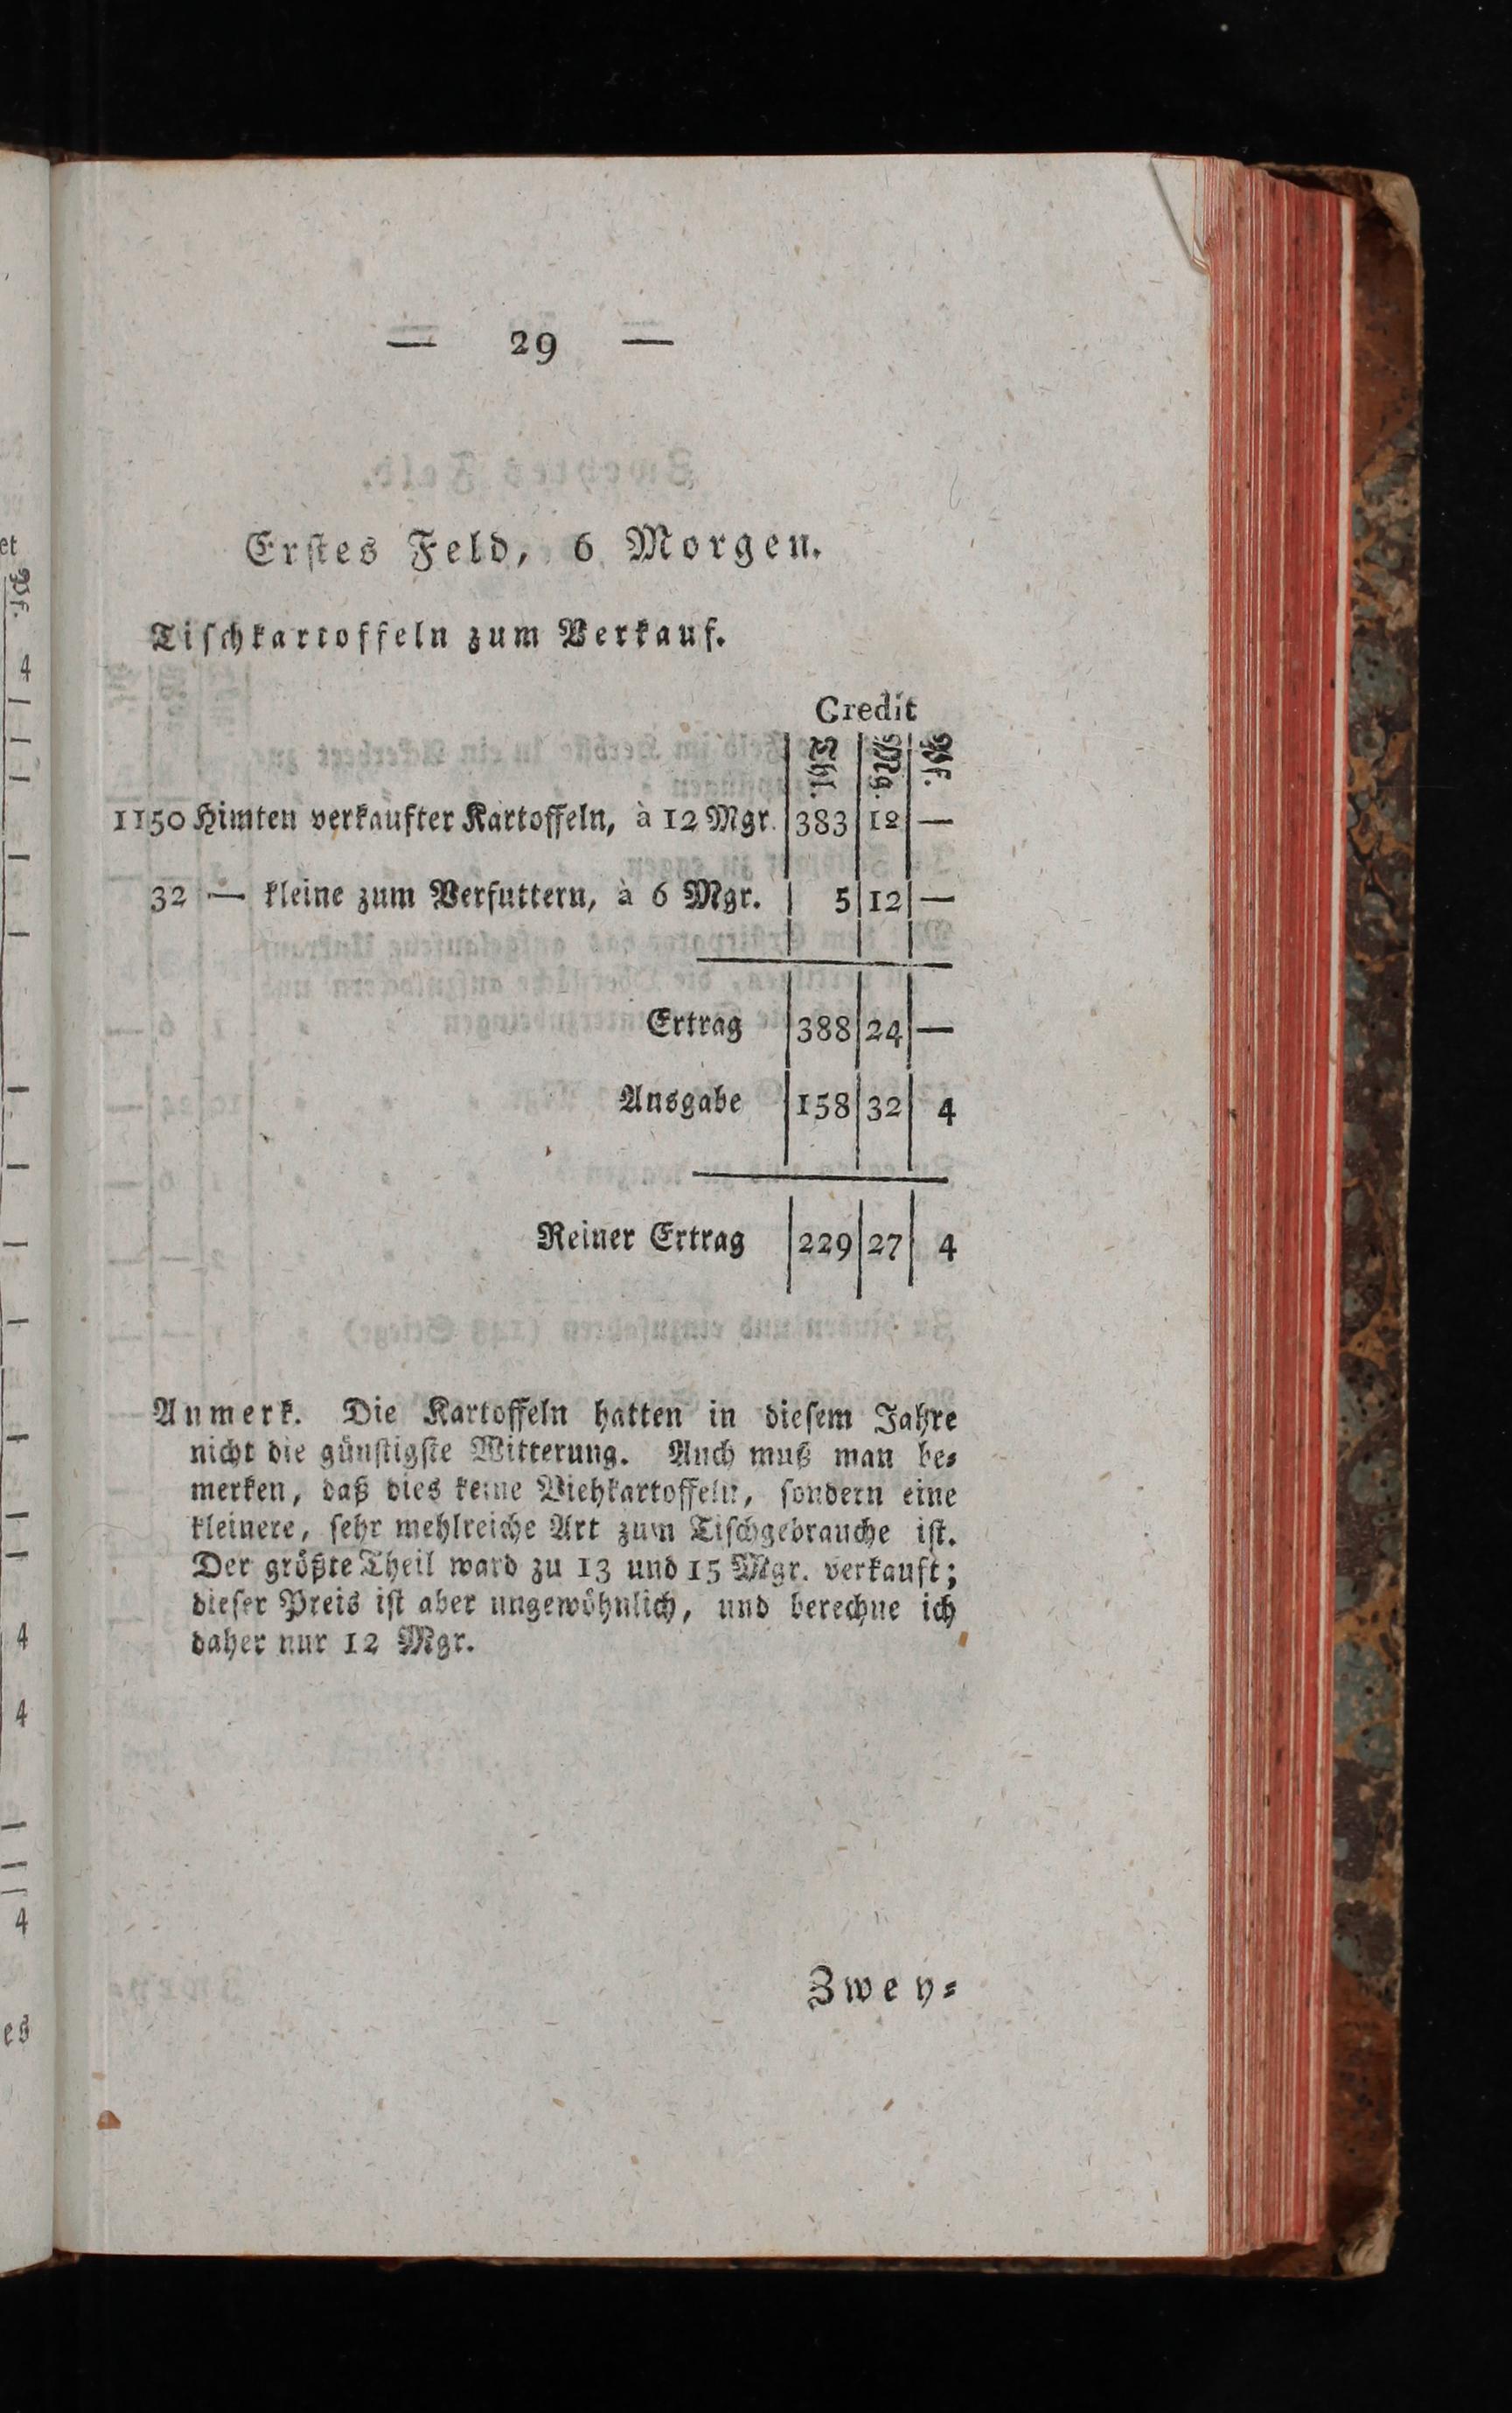 — 29 —
Erſtes Feld, 6 Morgen.
Tiſchkartoffeln zum Verkauf.
Credit
Thl. Mg. Pf.
1150 Himten verkaufter Kartoffeln, à 12 Mgr. 383 12 —
32 — kleine zum Verfuttern, à 6 Mgr. 5 12 —
Ertrag 388 24 —
Ausgabe 158 32 4
Reiner Ertrag 229 27 4
Anmerk. Die Kartoffeln hatten in dieſem Jahre
nicht die günſtigſte Witterung. Auch muß man be⸗
merken, daß dies keine Viehkartoffeln, ſondern eine
kleinere, ſehr mehlreiche Art zum Tiſchgebrauche iſt.
Der größte Theil ward zu 13 und 15 Mgr. verkauft;
dieſer Preis iſt aber ungewöhnlich, und berechne ich
daher nur 12 Mgr.
Zwey⸗